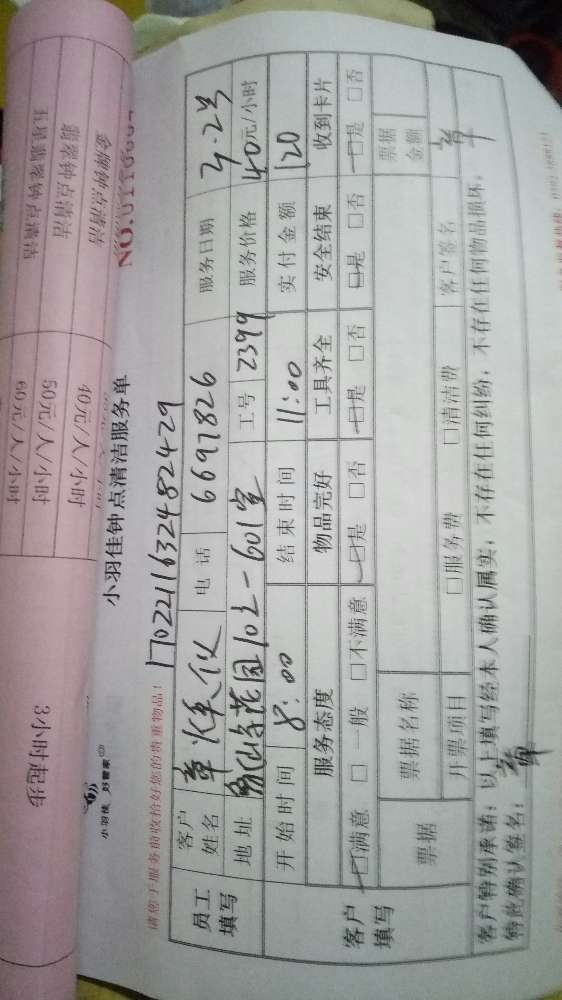 金牌钟点清洁 40元/人/小时
翡翠钟点清洁 50元/人/小时
五星翡翠钟点清洁 60元/人/小时
3小时起步
小羽佳 好管家
小羽佳钟点清洁服务单
请您于服务前收拾好您的贵重物品!
170221163248 2429
员工填写
客户姓名 电话 6697826 服务日期 2.25
地址 601室 工号 2399 服务价格 40元/小时
开始时间 8:00 结束时间 11:00 实付金额 120
客户填写
服务态度 物品完好 工具齐全 安全结束 收到卡片
□满意 □一般 □不满意 □是 □否 □是 □否 □是 □否 □是 □否
票据 票据名称 票据金额
开票项目 □服务费 □清洁费 客户签名 章
客户特别承诺:以上填写经本人确认属实,不存在任何纠纷,不存在任何物品损坏。
特此确认签名: 章